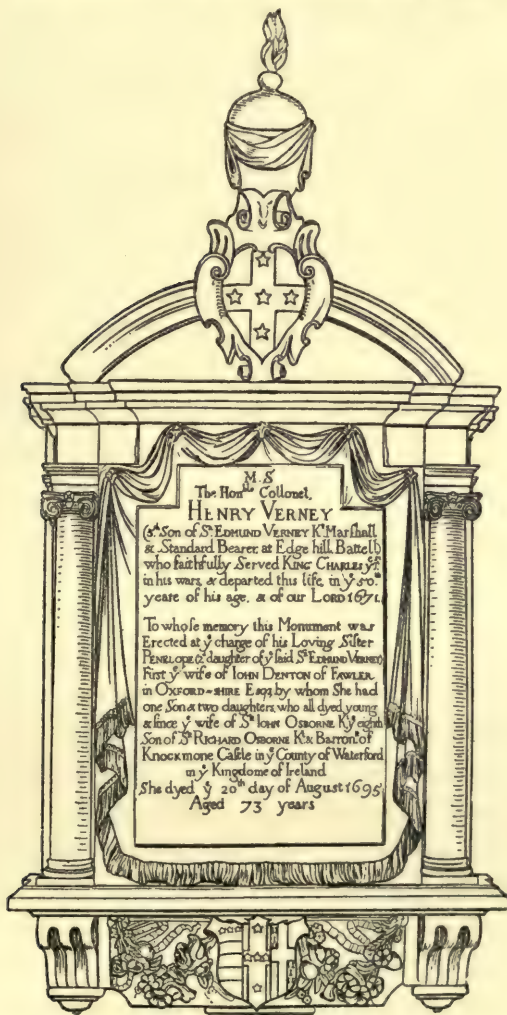 M.S
The Hon.ble Collonel,
HENRY VERNEY
(5.th Son of S.r EDMUND VERNEY K.t Marshall
& Standard Bearer, at Edge hill, Battell)
who faithfully Served KING CHARLES y.e
in his wars, & departed this life, in y.e 50.th
yeare of his age, & of our LORD 1671.
To whose memory this Monument was
Erected at y.e charge of his Loving Sister
PENELOPE (2.d daughter of y.e said S.r EDMUND VERNEY)
First y.e wife of IOHN DENTON of FAWLER
in OXFORD-SHIRE Esq.r by whom She had
one Son & two daughters, who all dyed young
& since y.e wife of S.r IOHN OSBORNE K.t y.e eighth
Son of S.r RICHARD OSBORNE K.t & Barron.t of
KNOCKMONE Castle in y.e County of Waterford
in y.e Kingdome of Ireland
She dyed y.e 20th day of August 1695,
Aged 73 years